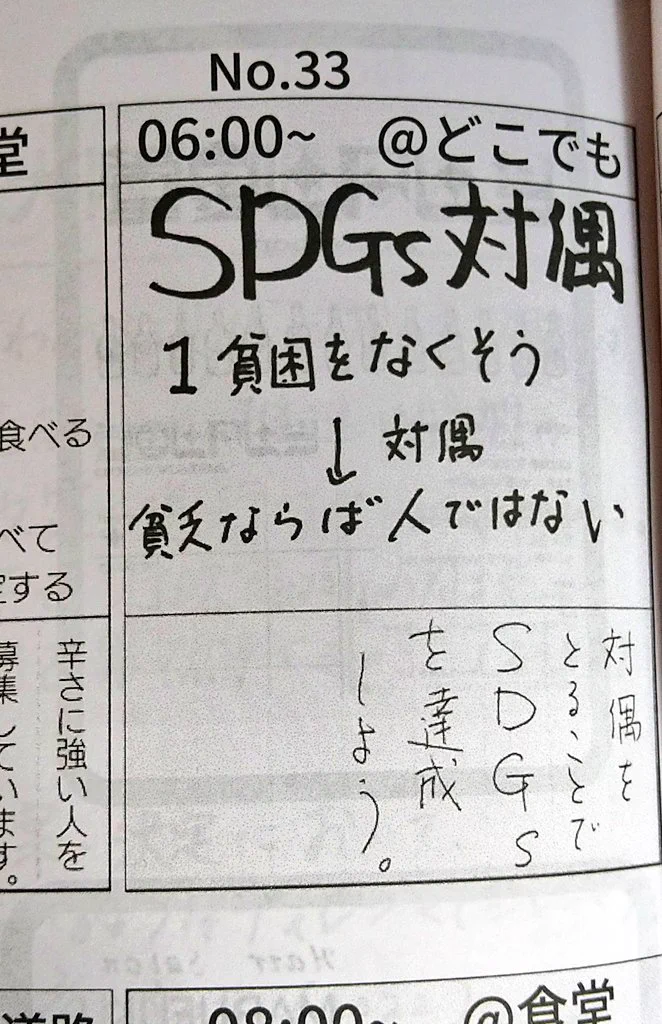 No.33
06:00~ @どこでも
SDGs対偶
1 貧困をなくそう
↓ 対偶
貧乏ならば人ではない
対偶を
とることで
SDGs
を達成
しよう。
堂
食べる
べて
定する
辛さに強い人を
募集しています。
道路
08:00~ @食堂
Hair Salon